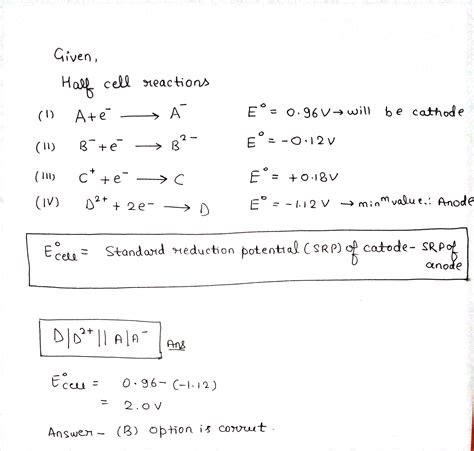 Given,
Half cell reactions
(I) A + e⁻ ⟶ A⁻ E° = 0.96V → will be cathode
(II) B⁻ + e⁻ ⟶ B²⁻ E° = -0.12V
(III) C⁺ + e⁻ ⟶ C E° = +0.18V
(IV) D²⁺ + 2e- ⟶ D E° = -1.12V → minᵐ value ∴ Anode
E°cell = Standard reduction potential (SRP) of catode - SRP of
anode
D|D²⁺||A|A⁻ Ans
E°cell = 0.96 - (-1.12)
= 2.0V
Answer - (B) option is correct.